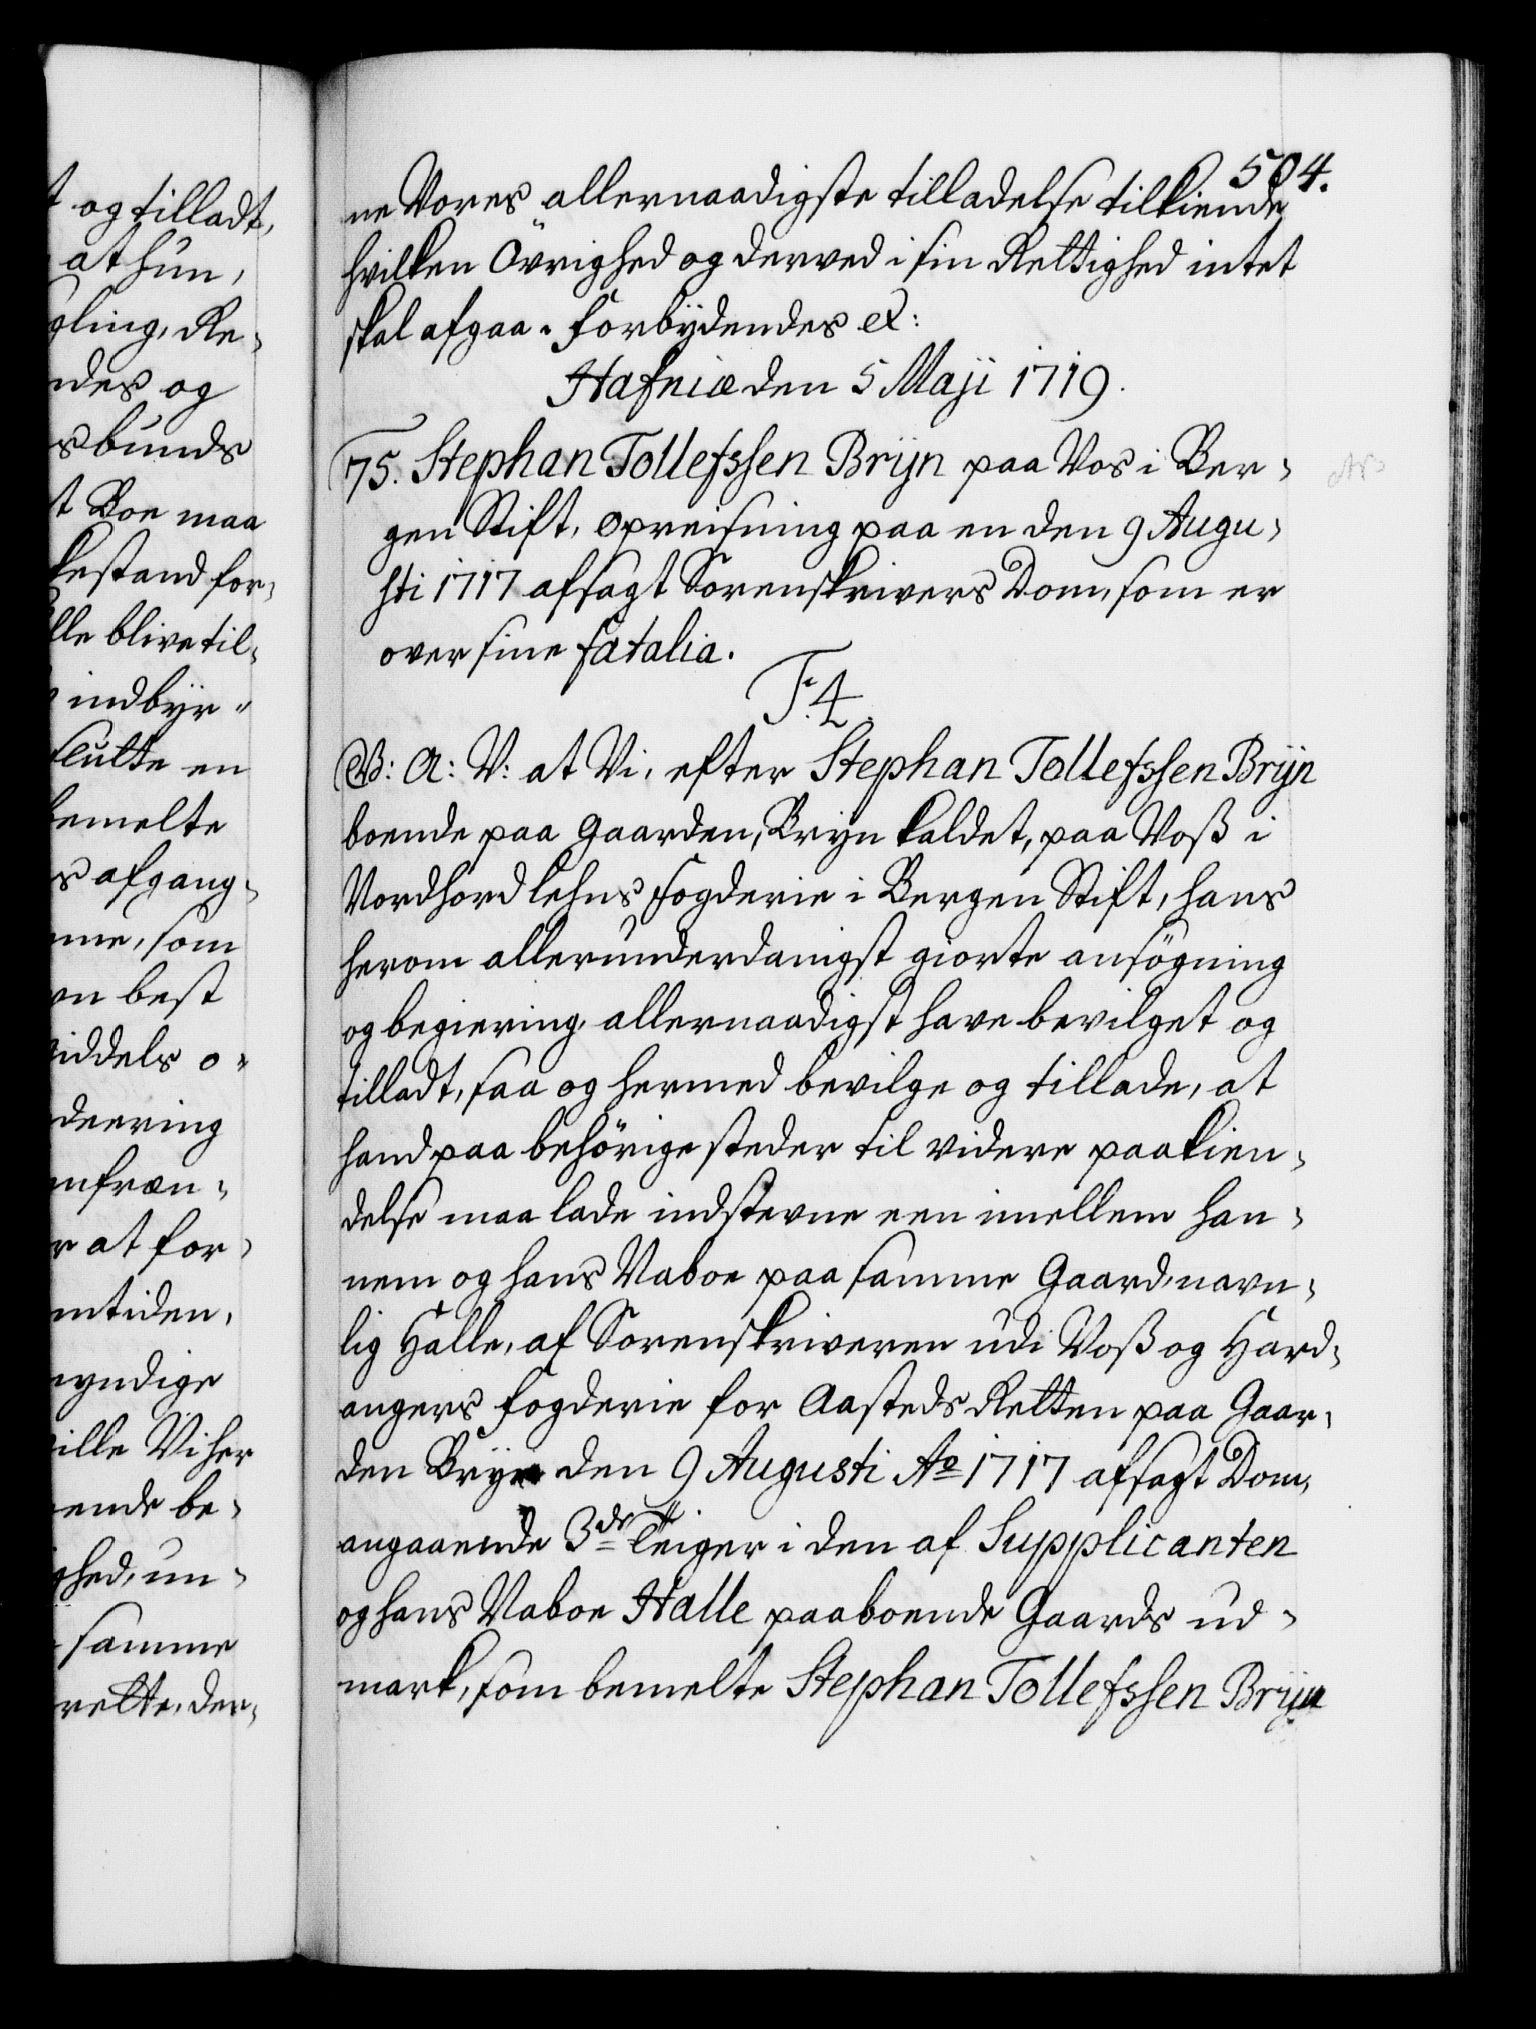 t og tilladt,
at hun,
gling, Re-
ndes og
sbunds
t Boe maa
kestand for-
lle blive til-
indbyr-
slutte en
bemelte
s afgang-
nne, som
on best
iddels o-
deering
nfræn-
r at for-
mtiden,
yndige
ille Vi her
ende be-
ghed, un-
samme
rette, der-
504.
ne Vores allernaadigste tilladelse tilkiende
hvilken Övrighed og derved i sin Rettighed intet
skal afgaa. Forbÿdendes et:
Hafniæ den 5 Maji 1719.
75. Stephan Tollefssen Brÿn paa Vos i Ber-
gen Stift, opreisning paa en den 9 Augu-
sti 1717 afsagt Sorenskrivers Dom, som er
over sine fatalia.
F. 4.
G: A: V: at Vi, efter Stephan Tollefssen Brÿn
boende paa Gaarden, Bryn kaldet, paa Voß i
Nordhordlehns Fogderie i Bergen Stift, hans
herom allerunderdanigst giorte ansögning
og begiering, allernaadigst have bevilget og
tilladt, saa og hermed bevilge og tillade, at
hand paa behörige steder til videre paakien-
delse maa lade indstevne een imellem han-
nem og hans Naboe paa samme Gaard, navn-
lig Halle, af Sorenskriveren udi Voß og Hard-
angers Fogderie for Aasteds Retten paa Gaar-
den Bryn den 9 Augusti Ao 1717 afsagt Dom,
angaaende 3de Teiger i den af Supplicanten
og hans Naboe Halle paaboende Gaards ud-
mark, som bemelte Stephan Tollefssen Brÿn